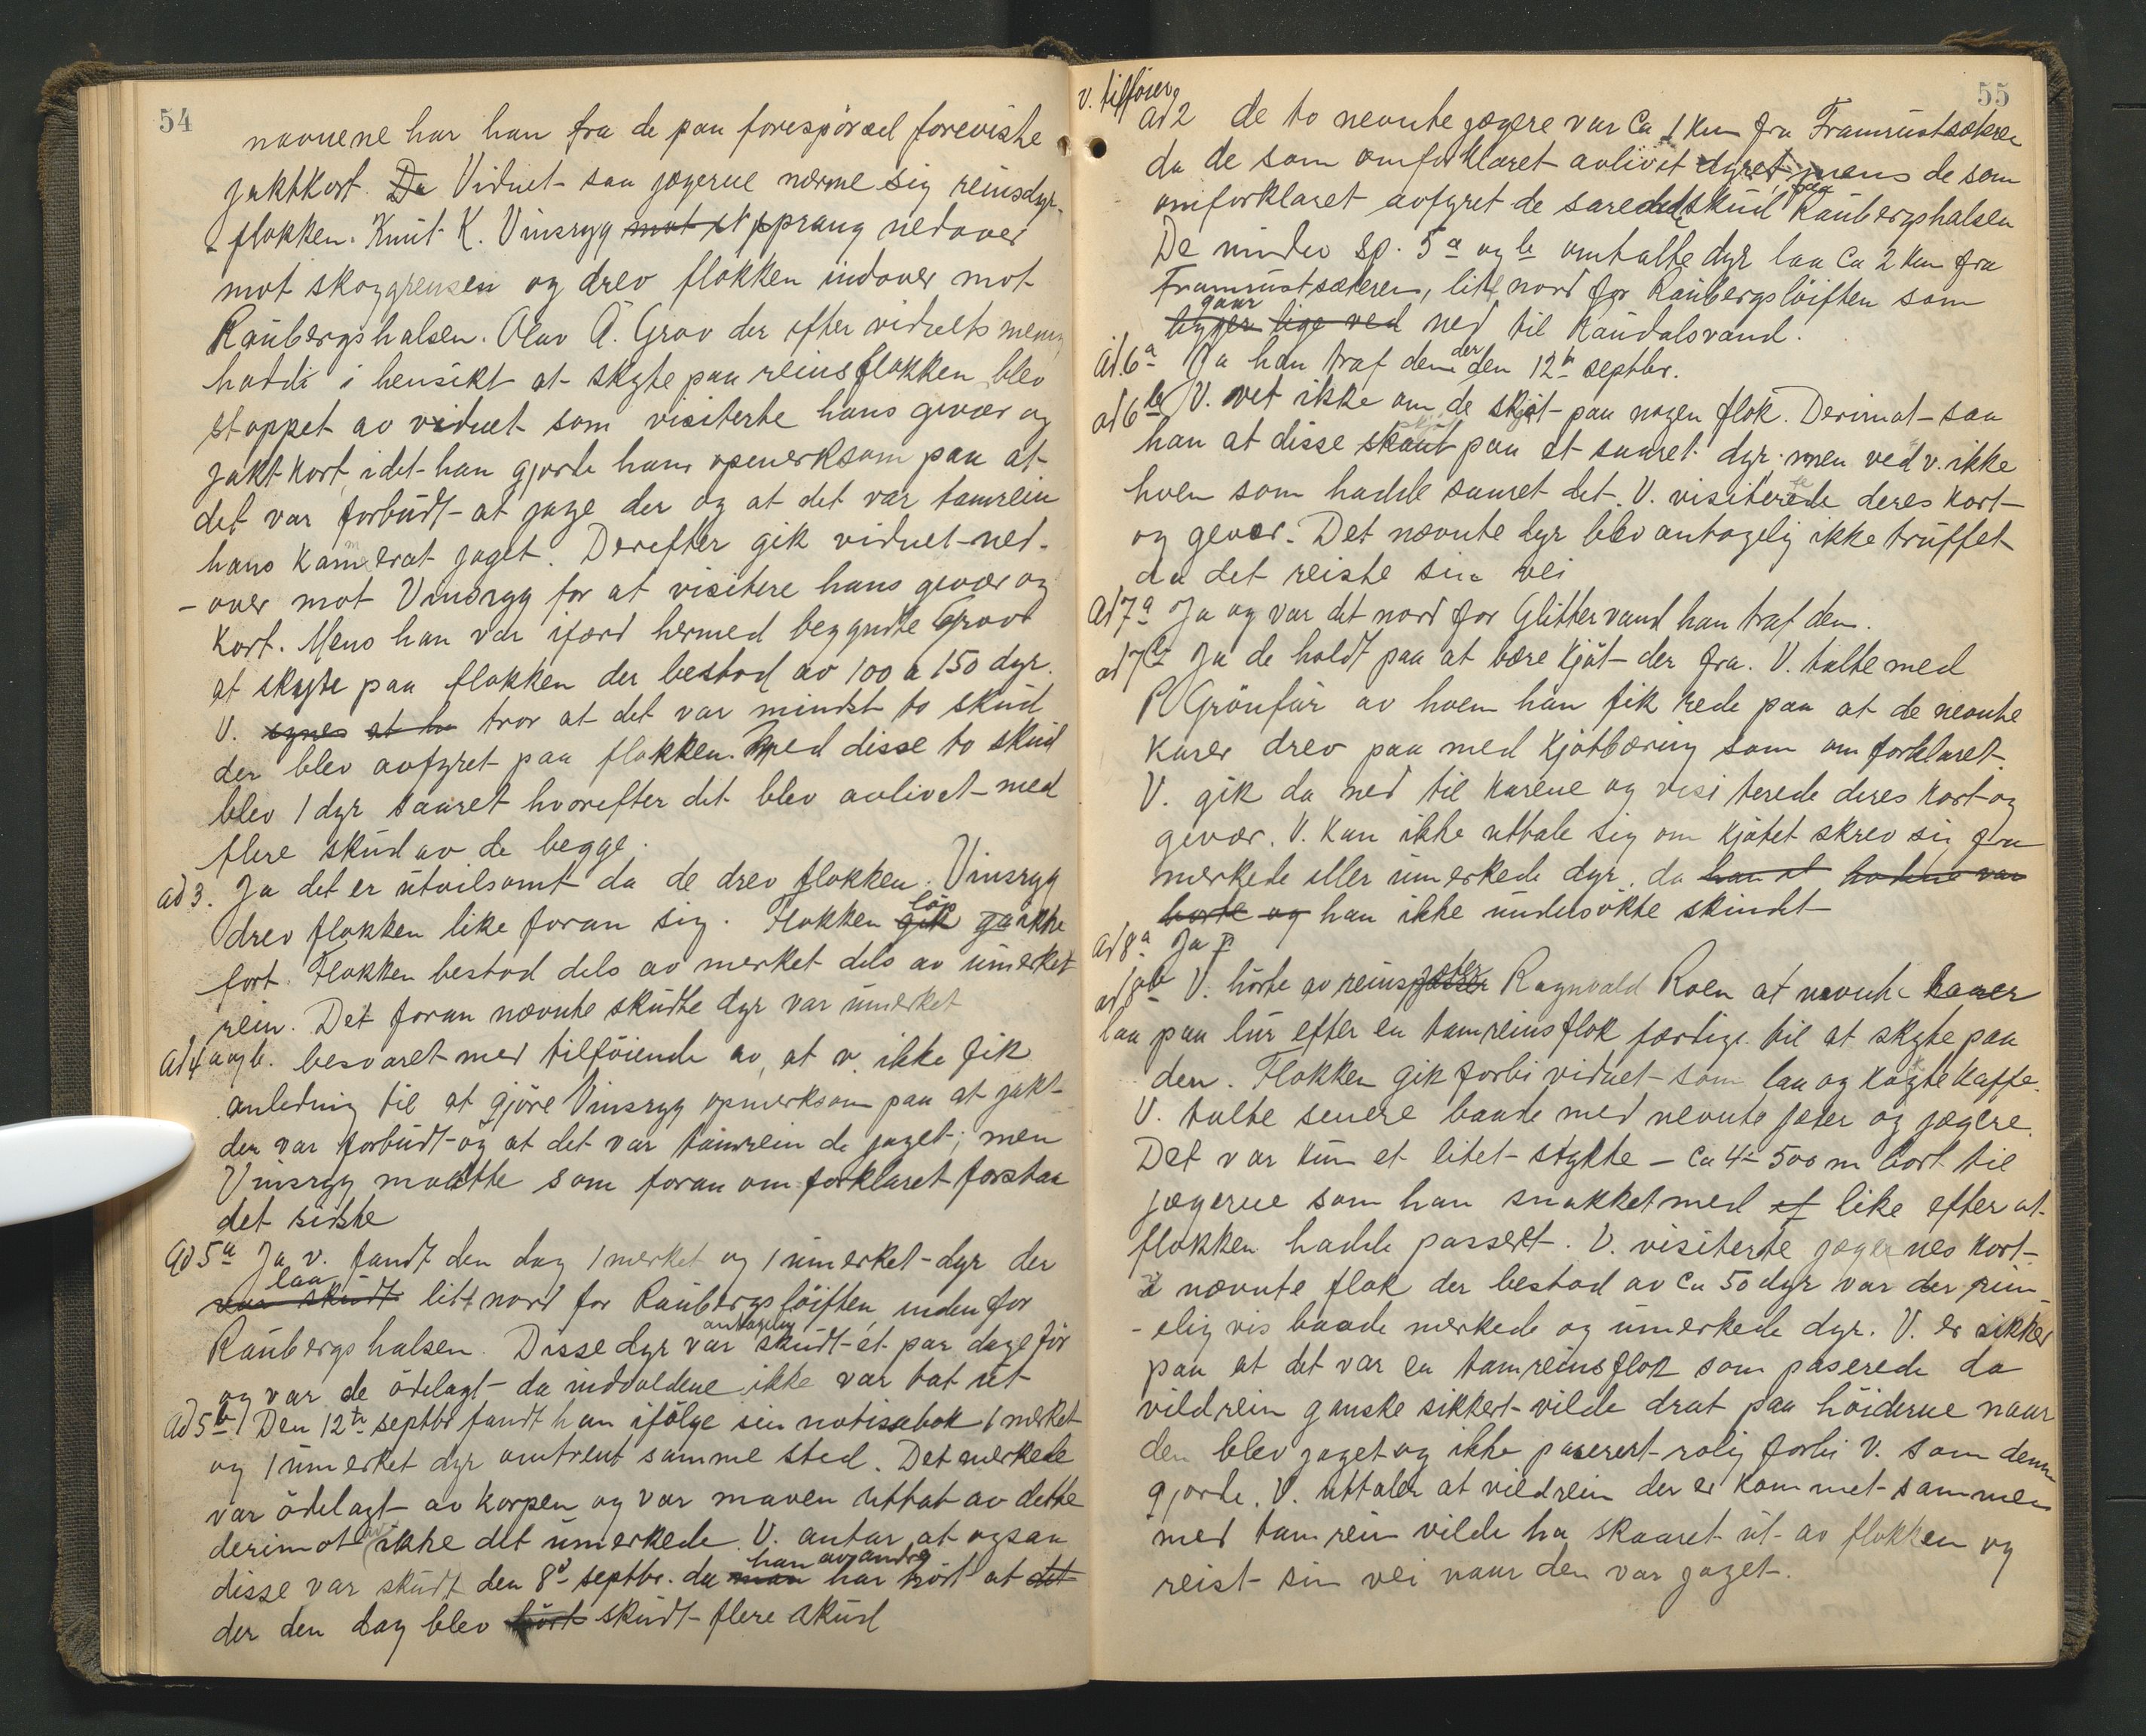 54
navnene har han fra de paa forespörsel foreviste
jaktkort. Da Vidnet saa jægerne nærme sig reinsdyr-
flokken. Knut K. Vinsryg mot st sprang nedover
mot skoggrensen og drev flokken indover mot
Raubergshalsen. Olav Å. Grov der efter vidnets mening
hadde i hensikt at skyte paa reinsflokken blev
stoppet av vidnet som visiterte hans gevær og
jaktkort, idet han gjorde ham opmerksom paa at
det var forbudt at jage der og at det var tamrein
hans kamerat jaget. Derefter gik vidnet ned-
-over mot Vinsryg for at visitere hans gevær og
kort. Mens han var ifærd hermed begyndte Grov
at skyte paa flokken der bestod av 100 a 150 dyr.
V. synes at ha tror at det var mindst to skud
der blev avfyret paa flokken. Med disse to skud
blev 1 dyr saaret hvorefter det blev avlivet med
flere skud av de begge.
ad 3. Ja det er utvilsomt da de drev flokken. Vinsryg
drev flokken like foran sig. Flokken gik löp ganske
fort. Flokken bestod dels av merket dels av umerket
rein. Det foran nævnte skudte dyr var umerket
ad 4 a og b. besvaret med tilföiende av, at v. ikke fik
anledning til at gjöre Vinsryg opmerksom paa at jakt
der var forbudt og at det var tamrein de jaget; men
Vinsryg maatte som foran omforklaret forstaa
det sidste
ad 5a Ja v. fandt den dag 1 merket og 1 umerket dyr der
var skudt laa litt nord for Raubergsløiften, indenfor
Raubergshalsen. Disse dyr var antagelig skudt et par dage för
og var de ödelagt da indvoldene ikke var tat ut
ad 5b Den 12te septbr fandt han ifölge sin notisbok 1 merket
og 1 umerket dyr omtrent samme sted. Det merkede
var ödelagt av korpen og var maven uttat av dette
derimot ikke av det umerkede. V. antar at ogsaa
disse var skudt den 8de septbr. da man han av andre har hört at det
der den dag blev hört skudt flere skud
55
v. tilföier
ad 2 de to nevnte jægere var ca 1 km fra Framrustsætren
da de som omforklaret avlivet dyret, mens de som
omforklaret avfyret de sarede skud fra Raubergshalsen
De under sp. 5a og b omtalte dyr laa ca 2 km fra
Framrustsæteren, litt nord for Raubergslöiften som
ligger lige ved gaar ned til Raudalsvand.
ad. 6a Ja han traf dem der den 12te septbr.
ad 6b V. vet ikke om de skjöt paa nogen flok. Derimot saa
han at disse skaut skjöt paa et saaret dyr. men ved v. ikke
hvem som hadde saaret det. V. visiterede deres kort
og gevær. Det nævnte dyr blev antagelig ikke truffet
da det reiste sin vei
ad 7a Ja og var det nord for Glittervand han traf dem.
ad 7b Ja de holdt paa at bære kjöt der fra. V. talte med
P. Grönfur av hvem han fik rede paa at de nevnte
karer drev paa med kjötbæring som omforklaret.
V. gik da ned til karene og visiterede deres kort og
gevær. V. kan ikke uttale sig om kjötet skrev sig fra
merkede eller umerkede dyr, da han at hodene var
borte og han ikke undersökte skindet
ad 8a Ja p
ad 8b V. hörte av reinsgjæter Ragnvald Roen at nævnte karer
laa paa lur efter en tamreinsflok færdige til at skyte paa
den. Flokken gik forbi vidnet som laa og kogte kaffe.
V. talte senere baade med nevnte jæter og jægere.
Det var kun et litet stykke – ca 4- 500 m bort til
jægerne som han snakket med et like efter at
flokken hadde passert. V. visiterte jægernes kort
i nævnte flok der bestod av ca 50 dyr var der rim-
-elig vis baade merkede og umerkede dyr. V. er sikker
paa at det var en tamreinsflok som passerede da
vildrein ganske sikkert vilde drat paa höiderne naar
den blev jaget og ikke passert rolig forbi V. som denne
gjorde. V. uttaler at vildrein der er kommet sammen
med tamrein vilde ha skaaret ut av flokken og
reist sin vei naar den var jaget.